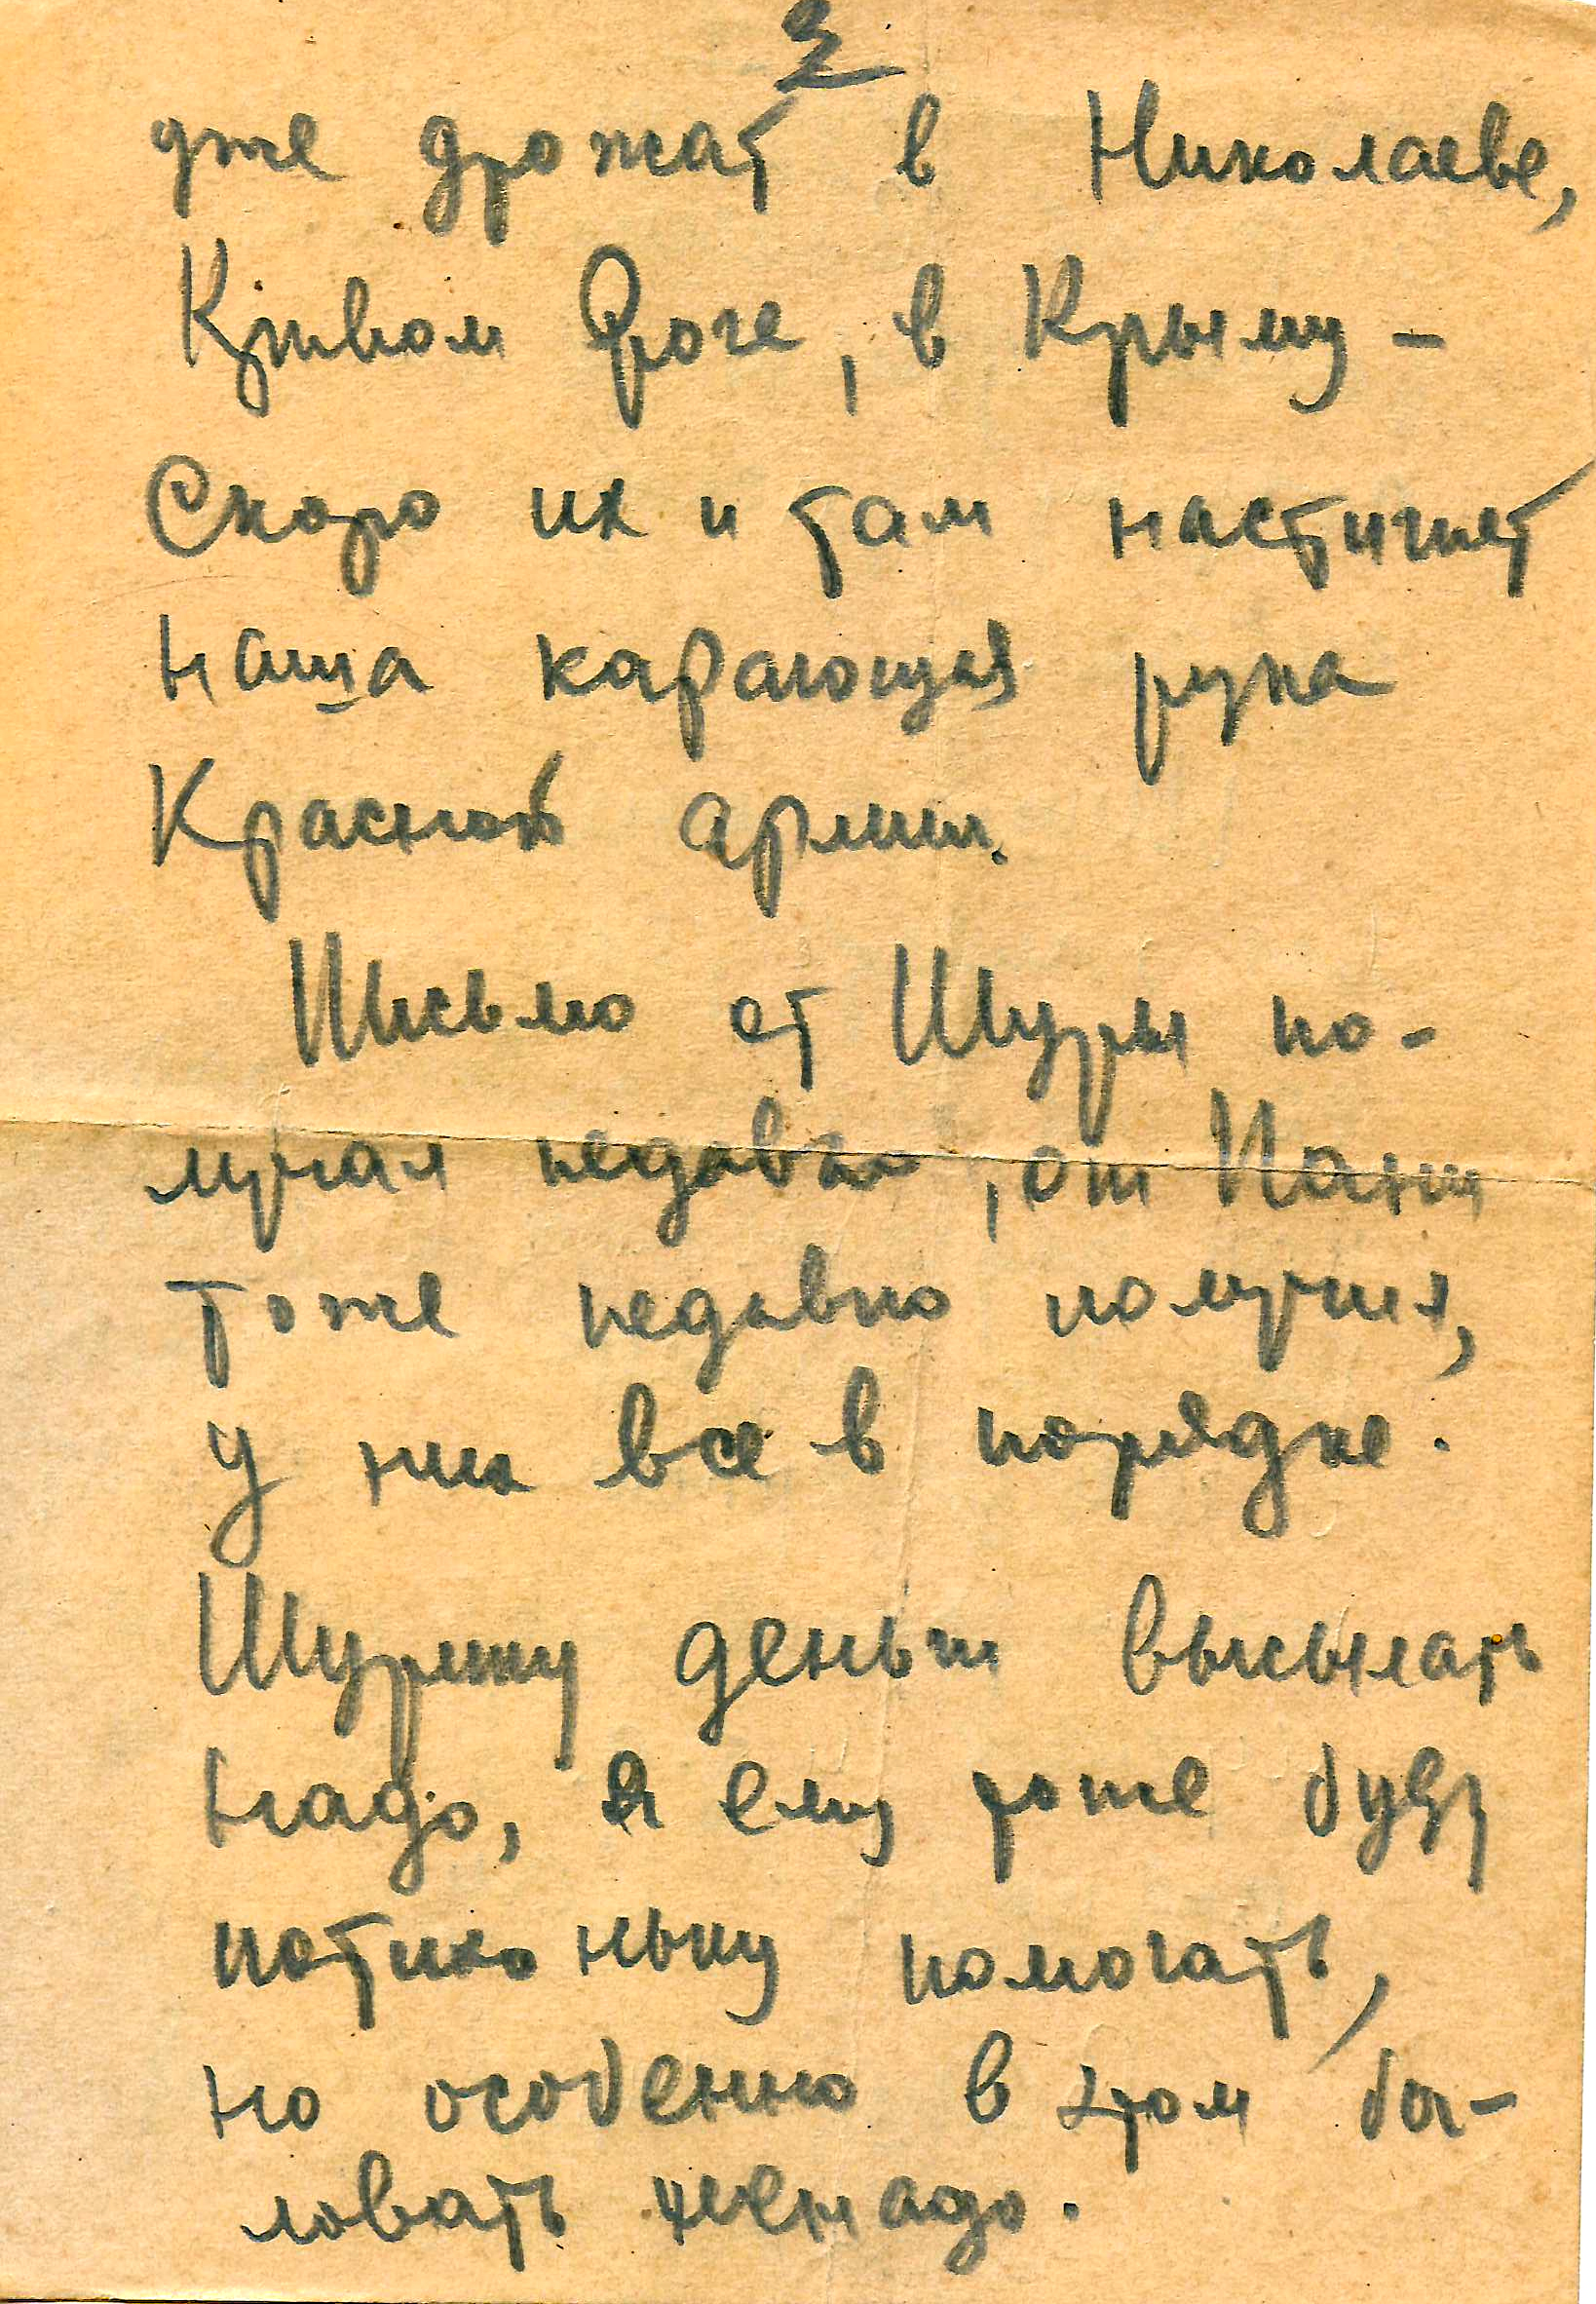 2
уже дрожат в Николаеве,
Кривом Роге, в Крыму -
Скоро их и там настигнет
наша карающая рука
Красной армии.
Письмо от Шуры по-
лучал недавно, от Пани
тоже недавно получил,
у них все в порядке.
Шурику деньги высылать
надо, я ему тоже буду
потихоньку помогать,
но особенно в этом ба-
ловать ненадо.